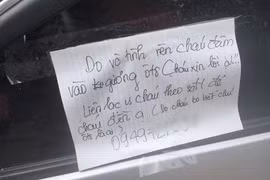 Do vô tình nên cháu đâm
vào gương ôtô Cháu xin lỗi ạ!!
Liên lạc với cháu theo sđt để
cháu đền ạ (Do cháu ko biết chủ
0949